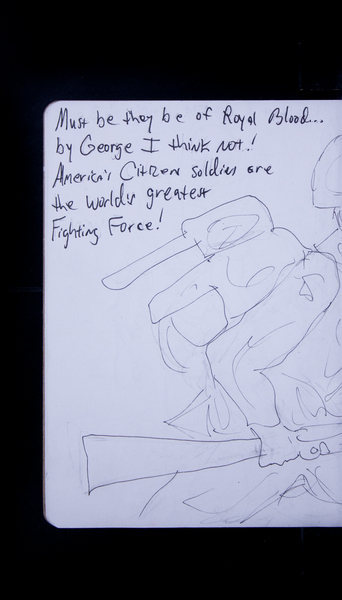 Must be they be of Royal Blood...
by George I think not.!
America's Citizen soldiers are
the worlds greatest
Fighting Force!